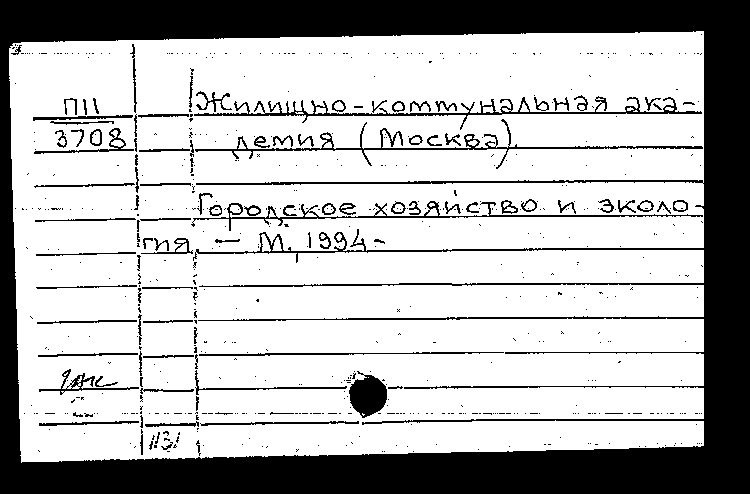 П11 Жилищно-коммунальная ака-
3708 демия (Москва).
Городское хозяйство и эколо-
гия. — М., 1994-
1131